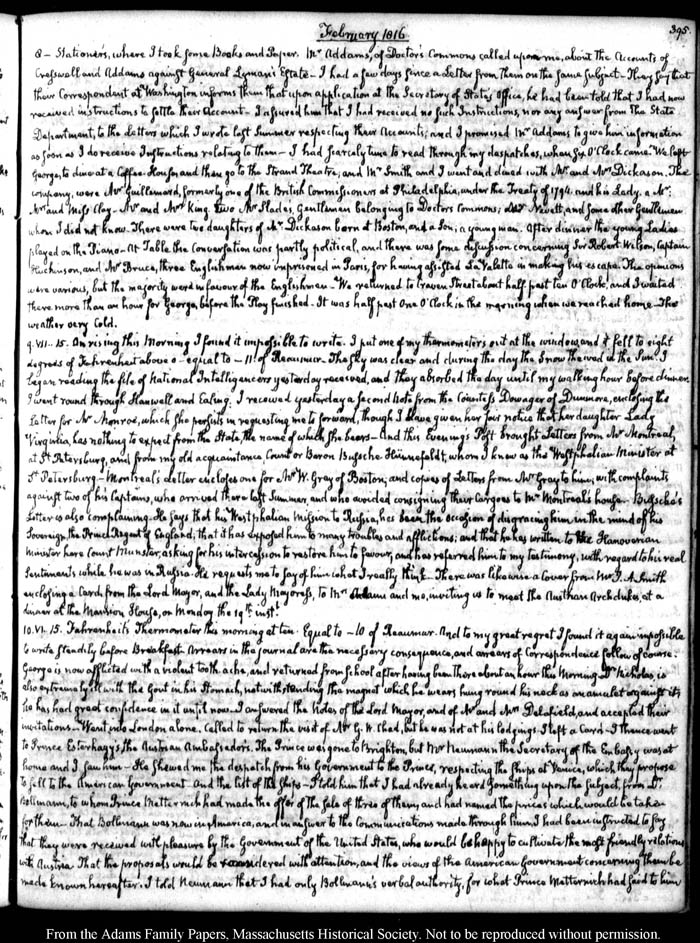 February 1816
395.
8 — Stationer's, where I took some Books and Paper. Mr Addams, of Doctor's Commons called upon me, about the Accounts of
Cresswell and Addams against General Lyman's Estate — I had a few days since a Letter from them on the same subject — They say that
their Correspondent at Washington informs them that upon application at the Secretary of State's Office, he had been told that I had now
received instructions to settle their Account — I assured him that I had received no such Instructions, nor any answer from the State
Department, to the Letters which I wrote last Summer respecting their Accounts; and I promised Mr Addams to give him information
as soon as I do receive Instructions relating to them — I had scarcely time to read through my despatches, when Six O'Clock came. We left
George, to dine at a Coffee-House and then go to the Strand Theatre; and Mr Smith, and I went and dined with Mr and Mrs Dickason. The
company, were Mr Guillemard, formerly one of the British Commissioners at Philadelphia, under the Treaty of 1794, and his Lady. a Mr
Mrs and Miss Clay — Mr and Mrs King two Mr Slades, Gentlemen belonging to Doctors Commons; Mr Nevett, and some other Gentlemen
whom I did not know. There were two daughters of Mr Dickason born at Boston, and a Son, a young man. After dinner the young Ladies
played on the Piano — At Table the Conversation was partly political, and there was some discussion concerning Sir Robert Wilson, Captain
Hutchinson, and Mr Bruce, three Englishmen now imprisoned in Paris, for having assisted La Valette in making his escape. The opinions
were various, but the majority were in favour of the Englishmen — We returned to Craven Street about half past ten O'Clock, and I waited
there more than an hour for George, before the Play finished. It was half past One O'Clock in the morning when we reached home — The
weather very Cold.
9. VII. 15. On rising this Morning I found it impossible to write. I put one of my thermometers out at the window and it fell to eight
degrees of Fahrenheit above 0 equal to — 11 of Reaumur. The sky was clear and during the day the Snow thawed in the Sun. I
began reading the file of National Intelligencers yesterday received, and they absorbed the day until my walking hour before dinner
I went round through Hanwell and Ealing. I received yesterday a second Note from the Countess Dowager of Dunmore, enclosing the
Letter for Mr Monroe, which she persists in requesting me to forward, though I have given her fair notice that her daughter Lady
Virginia, has nothing to expect from the State, the name of which she bears — And this Evening's Post brought Letters from Mr Montreal,
at St Petersburg, and from my old acquaintance, Count or Baron Bussche Hünnefeldt, whom I knew as the Westphalian Minister at
St Petersburg — Montreal's Letter encloses one for Mr W. Gray of Boston, and copies of Letters from Mr Gray to him; with complaints
against two of his Captains, who arrived there last Summer, and who avoided consigning their Cargoes to Mr Montreal's house — Bussche's
Letter is also complaining. He says that his Westphalian mission to Russia, has been the occasion of disgracing him in the mind of his
Sovereign, the Prince Regent of England; that it has exposed him to many troubles and afflictions; and that he has written to the Hanoverian
Minister here Count Munster, asking for his intercession to restore him to favour, and has referred him to my testimony, with regard to his real
Sentiments while he was in Russia. He requests me to say of him what I really think — There was likewise a Cover from Mr J. A. Smith
enclosing a Card from the Lord Mayor, and the Lady Mayoress, to Mrs Adams and me, inviting us to meet the Austrian Archdukes, at a
dinner at the Mansion House, on Monday the 19th instt.
10. VI. 15. Fahrenheit's Thermometer this morning at ten. Equal to — 10 of Reaumur. And to my great regret I found it again impossible
to write steadily before Breakfast. Arrears in the journal are the necessary consequence, and arrears of Correspondence follow of course.
George is now afflicted with a violent tooth ache, and returned from School after having been there about an hour this Morning. Dr Nicholas, is
also extremely ill with the Gout in his Stomach, notwithstanding the magnet which he wears hung round his neck as an amulet against it;
he has had great confidence in it until now. I answered the Notes of the Lord Mayor, and of Mr and Mrs Delafield, and accepted their
invitations — Went into London alone. Called to return the visit of Mr G. W. Chad, but he was not at his lodgings I left a Card — I thence went
to Prince Esterhazy's the Austrian Ambassador's. The Prince was gone to Brighton, but Mr Neumann the Secretary of the Embassy was at
home and I saw him — He shewed me the despatch from his Government to the Prince, respecting the Ships at Venice, which they propose
to sell to the American Government and the list of the Ships — I told him that I had already heard something upon the subject, from Dr
Bollmann, to whom Prince Metternich had made the offer of the sale of three of them, and had named the prices which would be taken
for them — That Bollmann was now in America, and in answer to the Communications made through him I had been instructed to say
that they were received with pleasure by the Government of the United States, who would be happy to cultivate the most friendly relations
with Austria. That the proposals would be considered with attention, and the views of the American Government concerning them be
made known hereafter. I told Neumann that I had only Bollmann's verbal authority, for what Prince Metternich had said to him
From the Adams Family Papers, Massachusetts Historical Society. Not to be reproduced without permission.